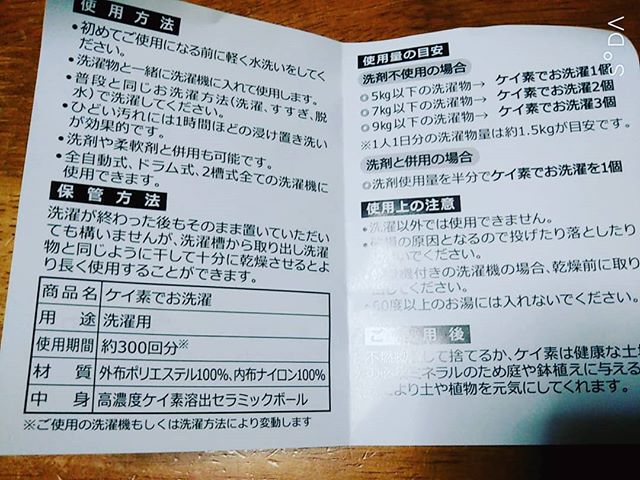 使用方法
・初めてご使用になる前に軽く水洗いをしてください。
・洗濯物と一緒に洗濯機に入れて使用します。
・普段と同じお洗濯方法(洗濯、すすぎ、脱
水)で洗濯してください。
・ひどい汚れには1時間ほどの浸け置き洗い
が効果的です。
・洗剤や柔軟剤と併用も可能です。
・全自動式、ドラム式、2槽式全ての洗濯機に
使用できます。
保管方法
洗濯が終わった後もそのまま置いていただい
ても構いませんが、洗濯槽から取り出し洗濯
物と同じように干して十分に乾燥させるとよ
り長く使用することができます。
商品名 ケイ素でお洗濯
用途 洗濯用
使用期間 約300回分※
材質 外布ポリエステル100%、内布ナイロン100%
中身 高濃度ケイ素溶出セラミックボール
※ご使用の洗濯機もしくは洗濯方法により変動します
使用量の目安
洗剤不使用の場合
◎5kg以下の洗濯物→ ケイ素でお洗濯1個
◎7kg以下の洗濯物→ ケイ素でお洗濯2個
◎9kg以下の洗濯物→ ケイ素でお洗濯3個
※1人1日分の洗濯物量は約1.5kgが目安です。
洗剤と併用の場合
◎洗剤使用量を半分でケイ素でお洗濯を1個
使用上の注意
・洗濯以外では使用できません。
の原因となるので投げたり落としたり
いでください。
機付きの洗濯機の場合、乾燥前に取り
してください。
0度以上のお湯には入れないでください。
ご使用後
して捨てるか、ケイ素は健康な土
ミネラルのため庭や鉢植えに与える
より土や植物を元気にしてくれます。
SODA